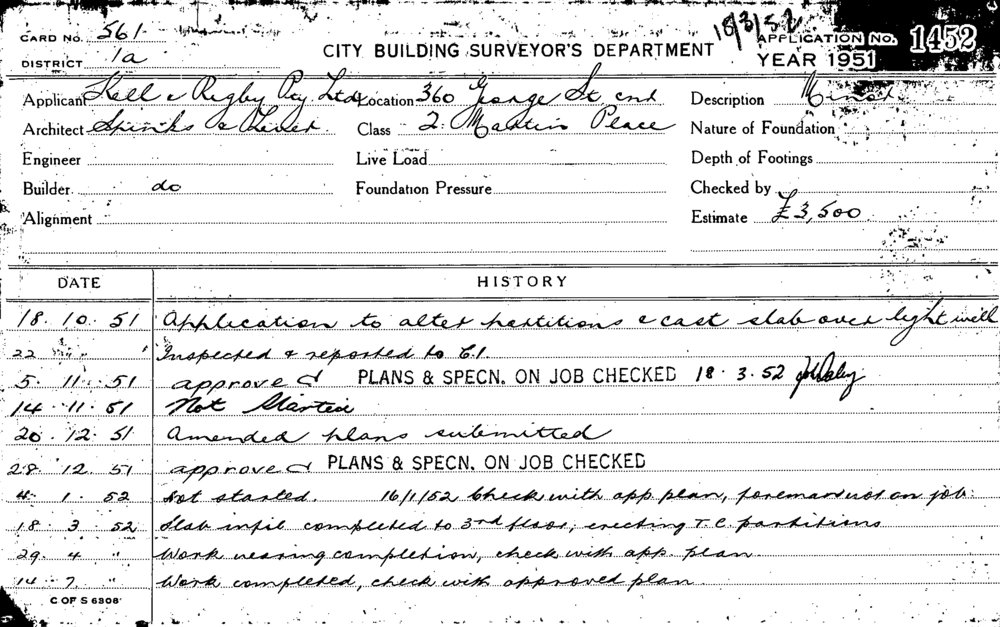 CARD NO. 561 18/3/52 APPLICATION NO. 1452
DISTRICT 1a CITY BUILDING SURVEYOR'S DEPARTMENT YEAR 1951
Applicant Kell & Rigby Pty Ltd Location 360 George St cnr Description Minor
Architect Spinks & Class 2. Martin Place Nature of Foundation
Engineer Live Load Depth of Footings
Builder do Foundation Pressure Checked by
Alignment Estimate £3,500
DATE HISTORY
18. 10. 51 Application to alter partitions & cast slab over light well
22 " " Inspected & reported to C.I.
5. 11. 51 approved PLANS & SPECN. ON JOB CHECKED 18. 3. 52
14. 11. 51 Not Started
20. 12. 51 Amended plans submitted
28. 12. 51 approved PLANS & SPECN. ON JOB CHECKED
4. 1. 52 Not started. 16/1/52 Check with app. plan, foreman not on job.
18. 3. 52 Slab infil completed to 3rd floor, erecting T.C. partitions
29. 4 " Work nearing completion, check with app. plan.
14. 7. " Work completed, check with approved plan.
C OF S 6308